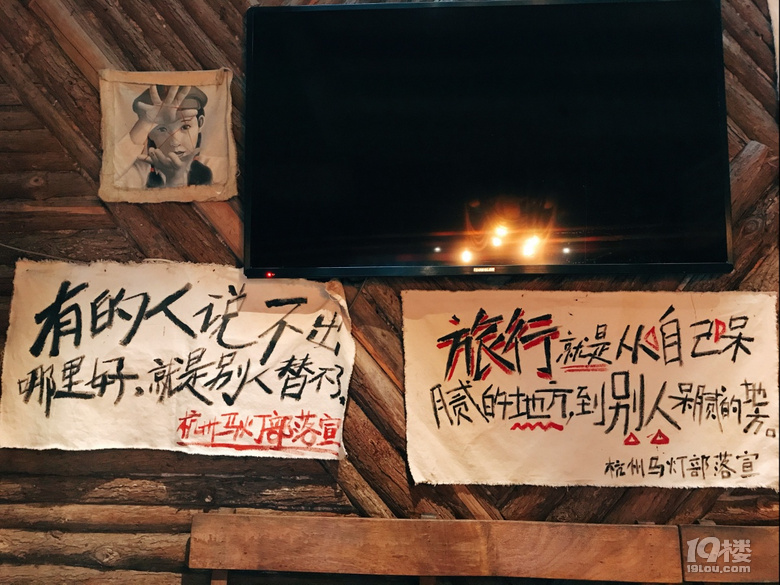 有的人说不出
哪里好、就是别人替不了、
杭州马灯部落宣
旅行就是从自己呆
腻的地方,到别人呆腻的地方。
杭州马灯部落宣
19楼
19lou.com